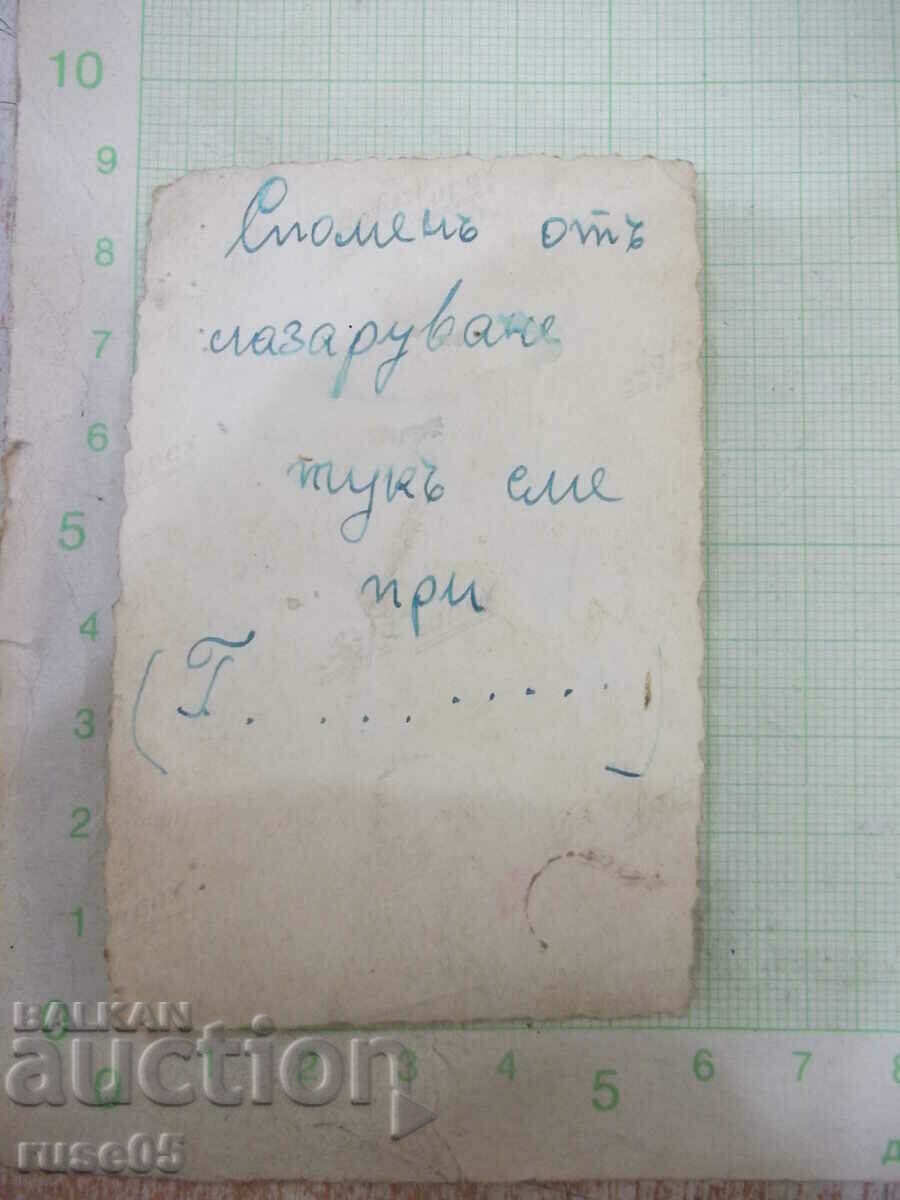 10
9
8
7
6
5
4
3
2
1
0
Споменъ отъ
лазаруване
тукъ сме
при
(Г. ... ......)
0 1 2 3 4 5 6 7 8
BALKAN
auction
ruse05